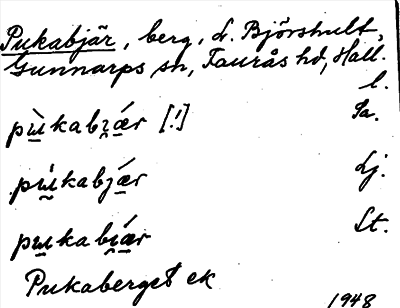 Pukabjär, berg, L. Björshult,
Gunnarps sn, Faurås hd, Hall.
l.
pɯ̀kabi̯ǽr [!] Sa.
pɯ́kabjǽr Lj.
pɯkabi̯ǽr St.
Pukaberget ek
1948